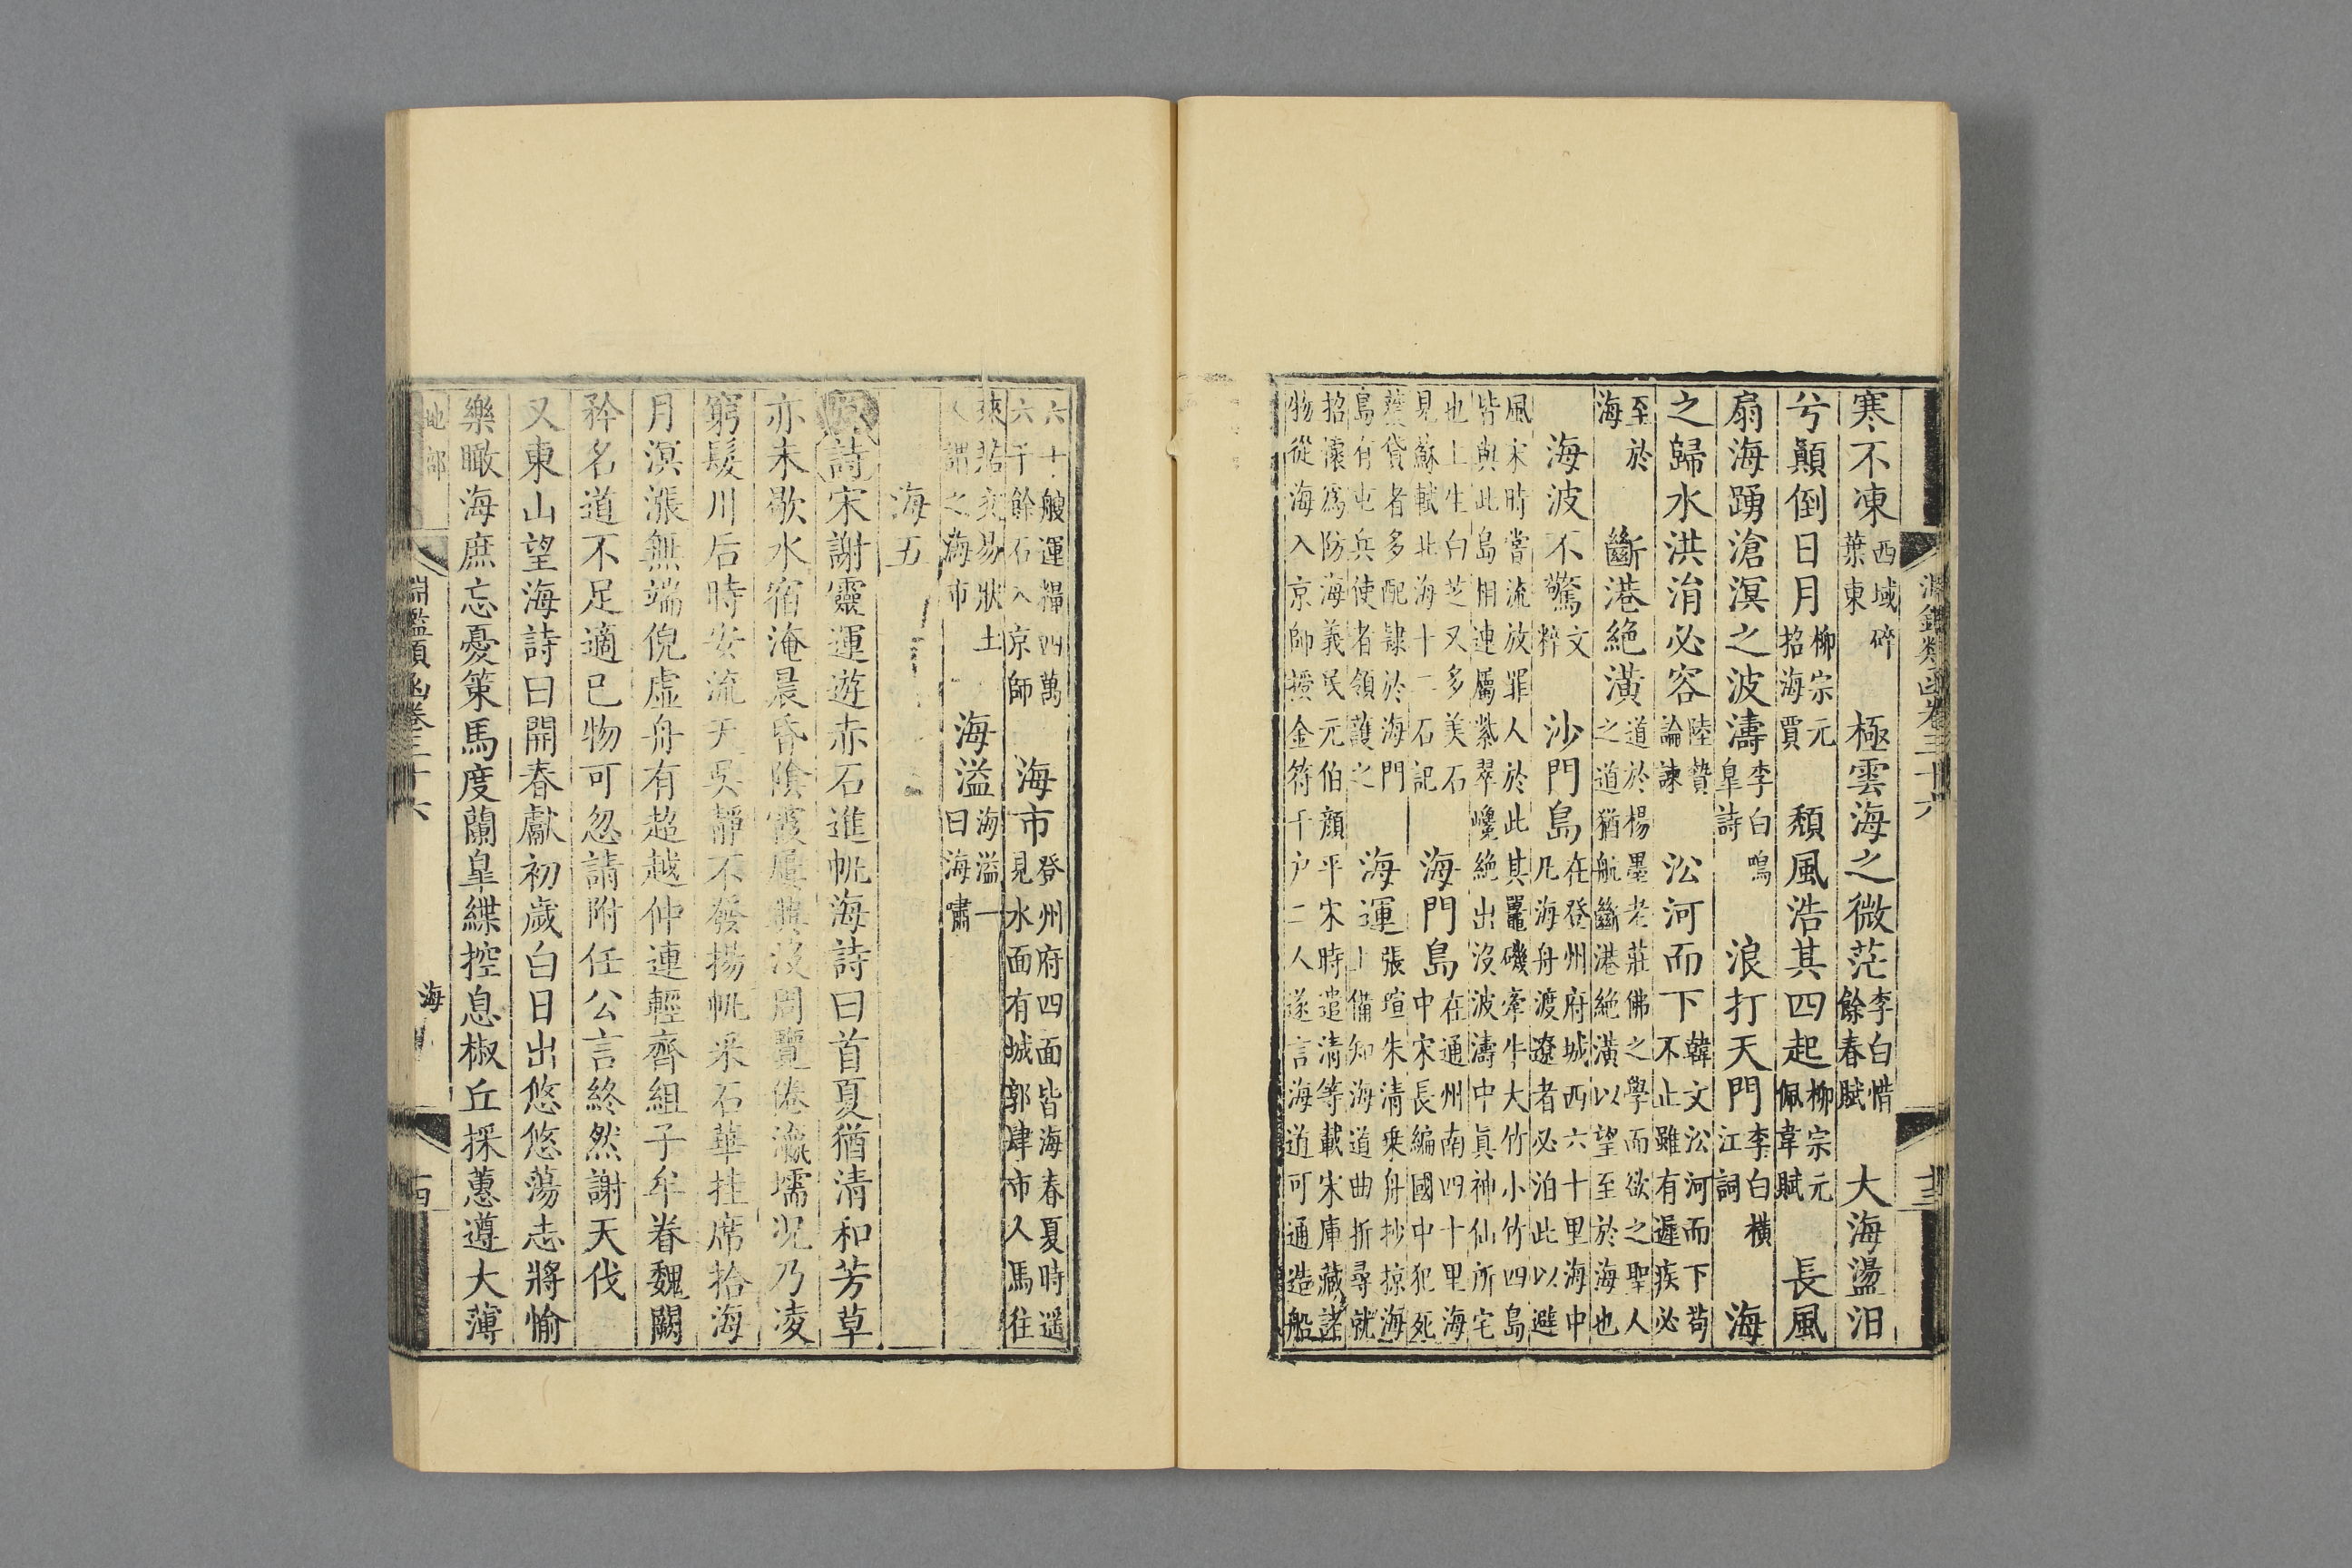 淵鑑類函卷三十六
十三
寒不凍西域碎葉東 極雲海之微茫李白惜餘春賦 大海盪汨
兮顛倒日月柳宗元招海賈 頹風浩其四起柳宗元佩韋賦 長風
扇海踴滄溟之波濤李白鳴皐詩 浪打天門李白橫江詞 海
之歸水洪涓必容陸贄論諫 㳂河而下韓文㳂河而下苟不止雖有遲疾必
至於海 斷港絶潢道於楊墨老莊佛之學而欲之聖人之道猶航斷港絶潢以望至於海也
海波不驚文粹 沙門島在登州府城西六十里海中凡海舟渡遼者必泊此以避
風宋時嘗流放罪人於此其鼉磯牽牛大竹小竹四島皆與此島相連屬紫翠巉絶出沒波濤中眞神仙所宅
也上生白芝又多美石見蘇軾北海十二石記 海門島在通州南四十里海中宋長編國中犯死
獲貸者多配隷於海門島有屯兵使者領護之 海運張瑄朱清乘舟抄掠海上備知海道曲折尋就
招懷爲防海義民元伯顔平宋時遣清等載宋庫藏諸物從海入京師授金符千户二人遂言海道可通造船
六十艘運糧四萬六千餘石入京師 海市登州府四面皆海春夏時遥見水面有城郭肆市人馬往
來若交易狀土人謂之海市 海溢海溢一曰海嘯
海五
原詩宋謝靈運遊赤石進帆海詩曰首夏猶清和芳草
亦未歇水宿淹晨昏陰霞屢興沒周覽倦瀛壖況乃凌
窮髮川后時安流天吳靜不發揚帆采石華挂席拾海
月溟漲無端倪虛舟有超越仲連輕齊組子牟眷魏闕
矜名道不足適已物可忽請附任公言終然謝天伐
又東山望海詩曰開春獻初歲白日出悠悠蕩志將愉
樂瞰海庶忘憂策馬度蘭皐緤控息椒丘採蕙遵大薄
地部
淵鑑類函卷三十六
海